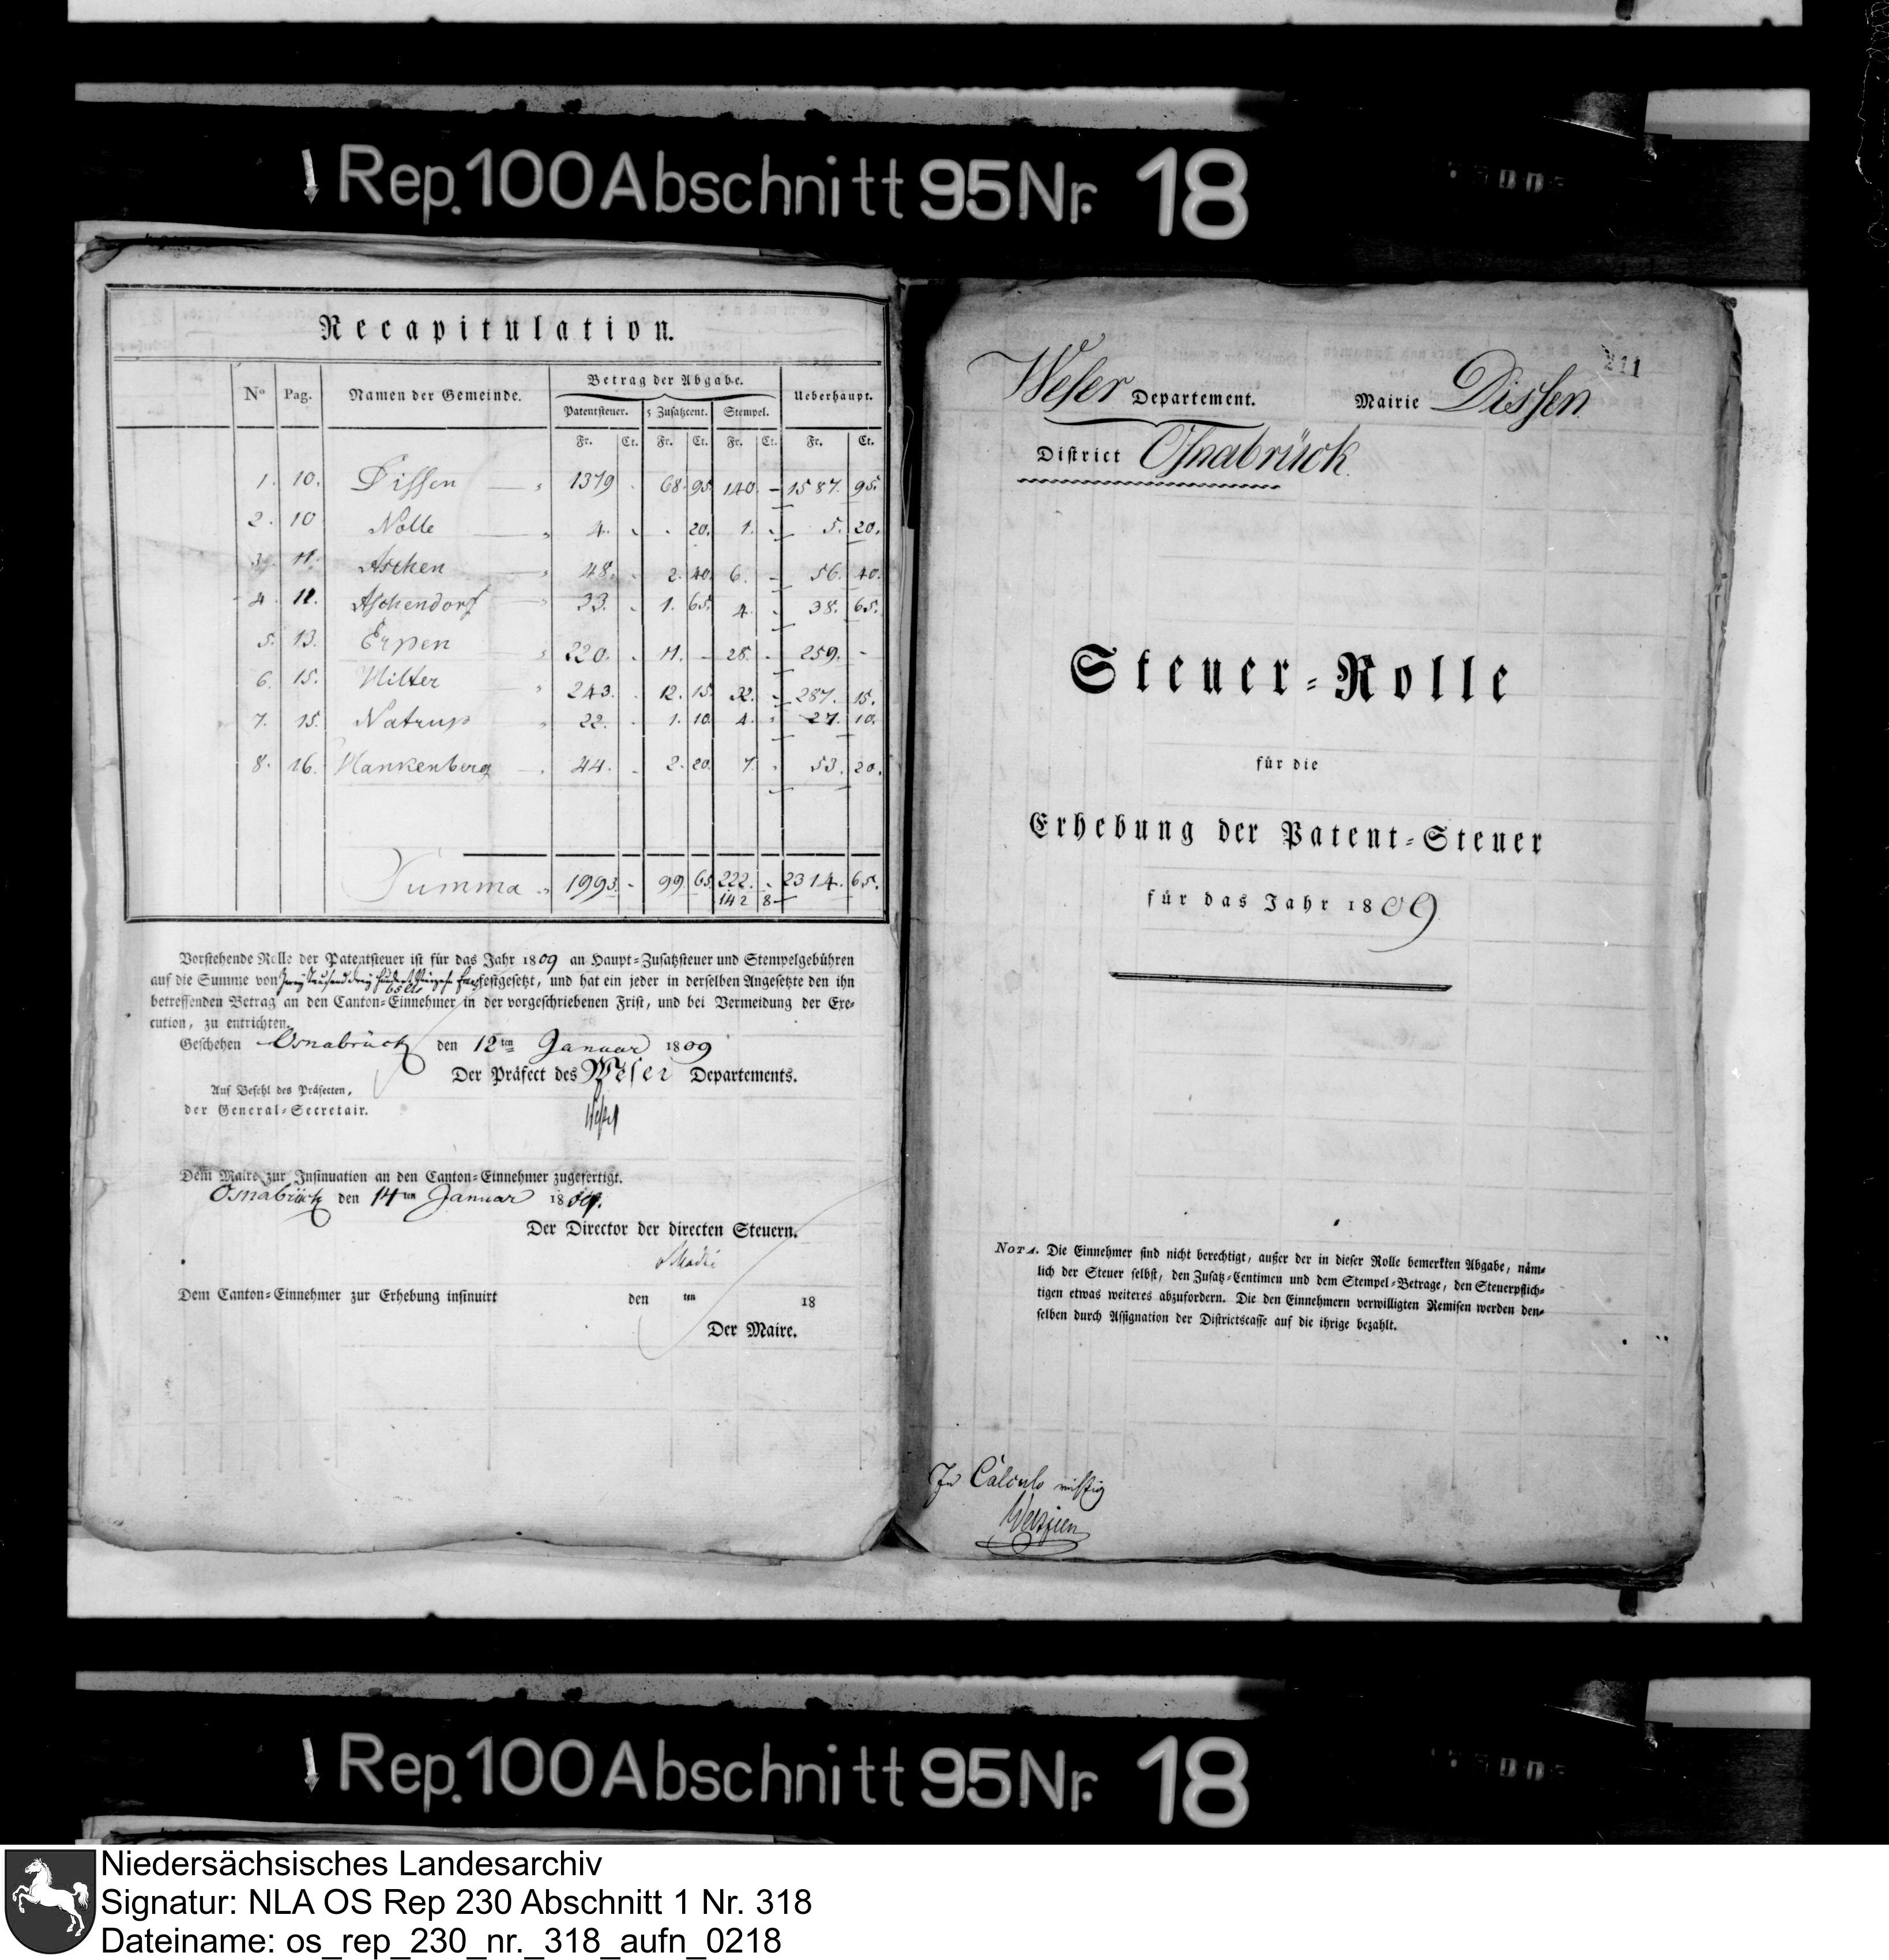 Rep. 100 Abschnitt 95 Nr. 18
Recapitulation.
Nº Pag. Namen der Gemeinde. Betrag der Abgabe. Ueberhaupt.
Patentsteuer. 5 Zusatzcent. Stempel.
Fr. Ct. Fr. Ct. Fr. Ct. Fr. Ct.
1. 10. Dissen 1379 . 68. 95. 140. - 1587. 95.
2. 10 Nolle 4. . . 20. 1. . 5. 20.
3. 11. Aschen 48. . 2. 40. 6. - 56. 40.
4. 12. Aschendorf 33. . 1. 65. 4. . 38. 65.
5. 13. Erpen 220. . 11. - 28. . 259. -
6. 15. Hilter 243. . 12. 15. 32. . 287. 15.
7. 15. Natrup 22. . 1. 10. 4. . 27. 10.
8. 16. Hankenberg 44. . 2. 20. 7. . 53. 20.
Summa 1993. - 99 65. 222. . 2314. 65.
142 8
Vorstehende Rolle der Patentsteuer ist für das Jahr 1809 an Haupt-Zusatzsteuer und Stempelgebühren
auf die Summe von Zwey Tausend drey Hundert Vierzehn Franc festgesetzt, und hat ein jeder in derselben Angesetzte den ihn
65 Cts
betreffenden Betrag an den Canton-Einnehmer in der vorgeschriebenen Frist, und bei Vermeidung der Exe-
cution, zu entrichten.
Geschehen Osnabrück den 12ten Januar 1809
Der Präfect des Weser Departements.
Auf Befehl des Präfecten,
der General-Secretair.
Dem Maire zur Insinuation an den Canton-Einnehmer zugefertigt.
Osnabrück den 14ten Januar 1809.
Der Director der directen Steuern.
Dem Canton-Einnehmer zur Erhebung insinuirt den ten 18
Der Maire.
211
Weser Departement. Mairie Dissen
District Osnabrück.
Steuer-Rolle
für die
Erhebung der Patent-Steuer
für das Jahr 1809
NOTA. Die Einnehmer sind nicht berechtigt, außer der in dieser Rolle bemerkten Abgabe, näm-
lich der Steuer selbst, den Zusatz-Centimen und dem Stempel-Betrage, den Steuerpflich-
tigen etwas weiteres abzufordern. Die den Einnehmern verwilligten Remisen werden den-
selben durch Assignation der Districtscasse auf die ihrige bezahlt.
In Calculo richtig
Rep. 100 Abschnitt 95 Nr. 18
Niedersächsisches Landesarchiv
Signatur: NLA OS Rep 230 Abschnitt 1 Nr. 318
Dateiname: os_rep_230_nr._318_aufn_0218